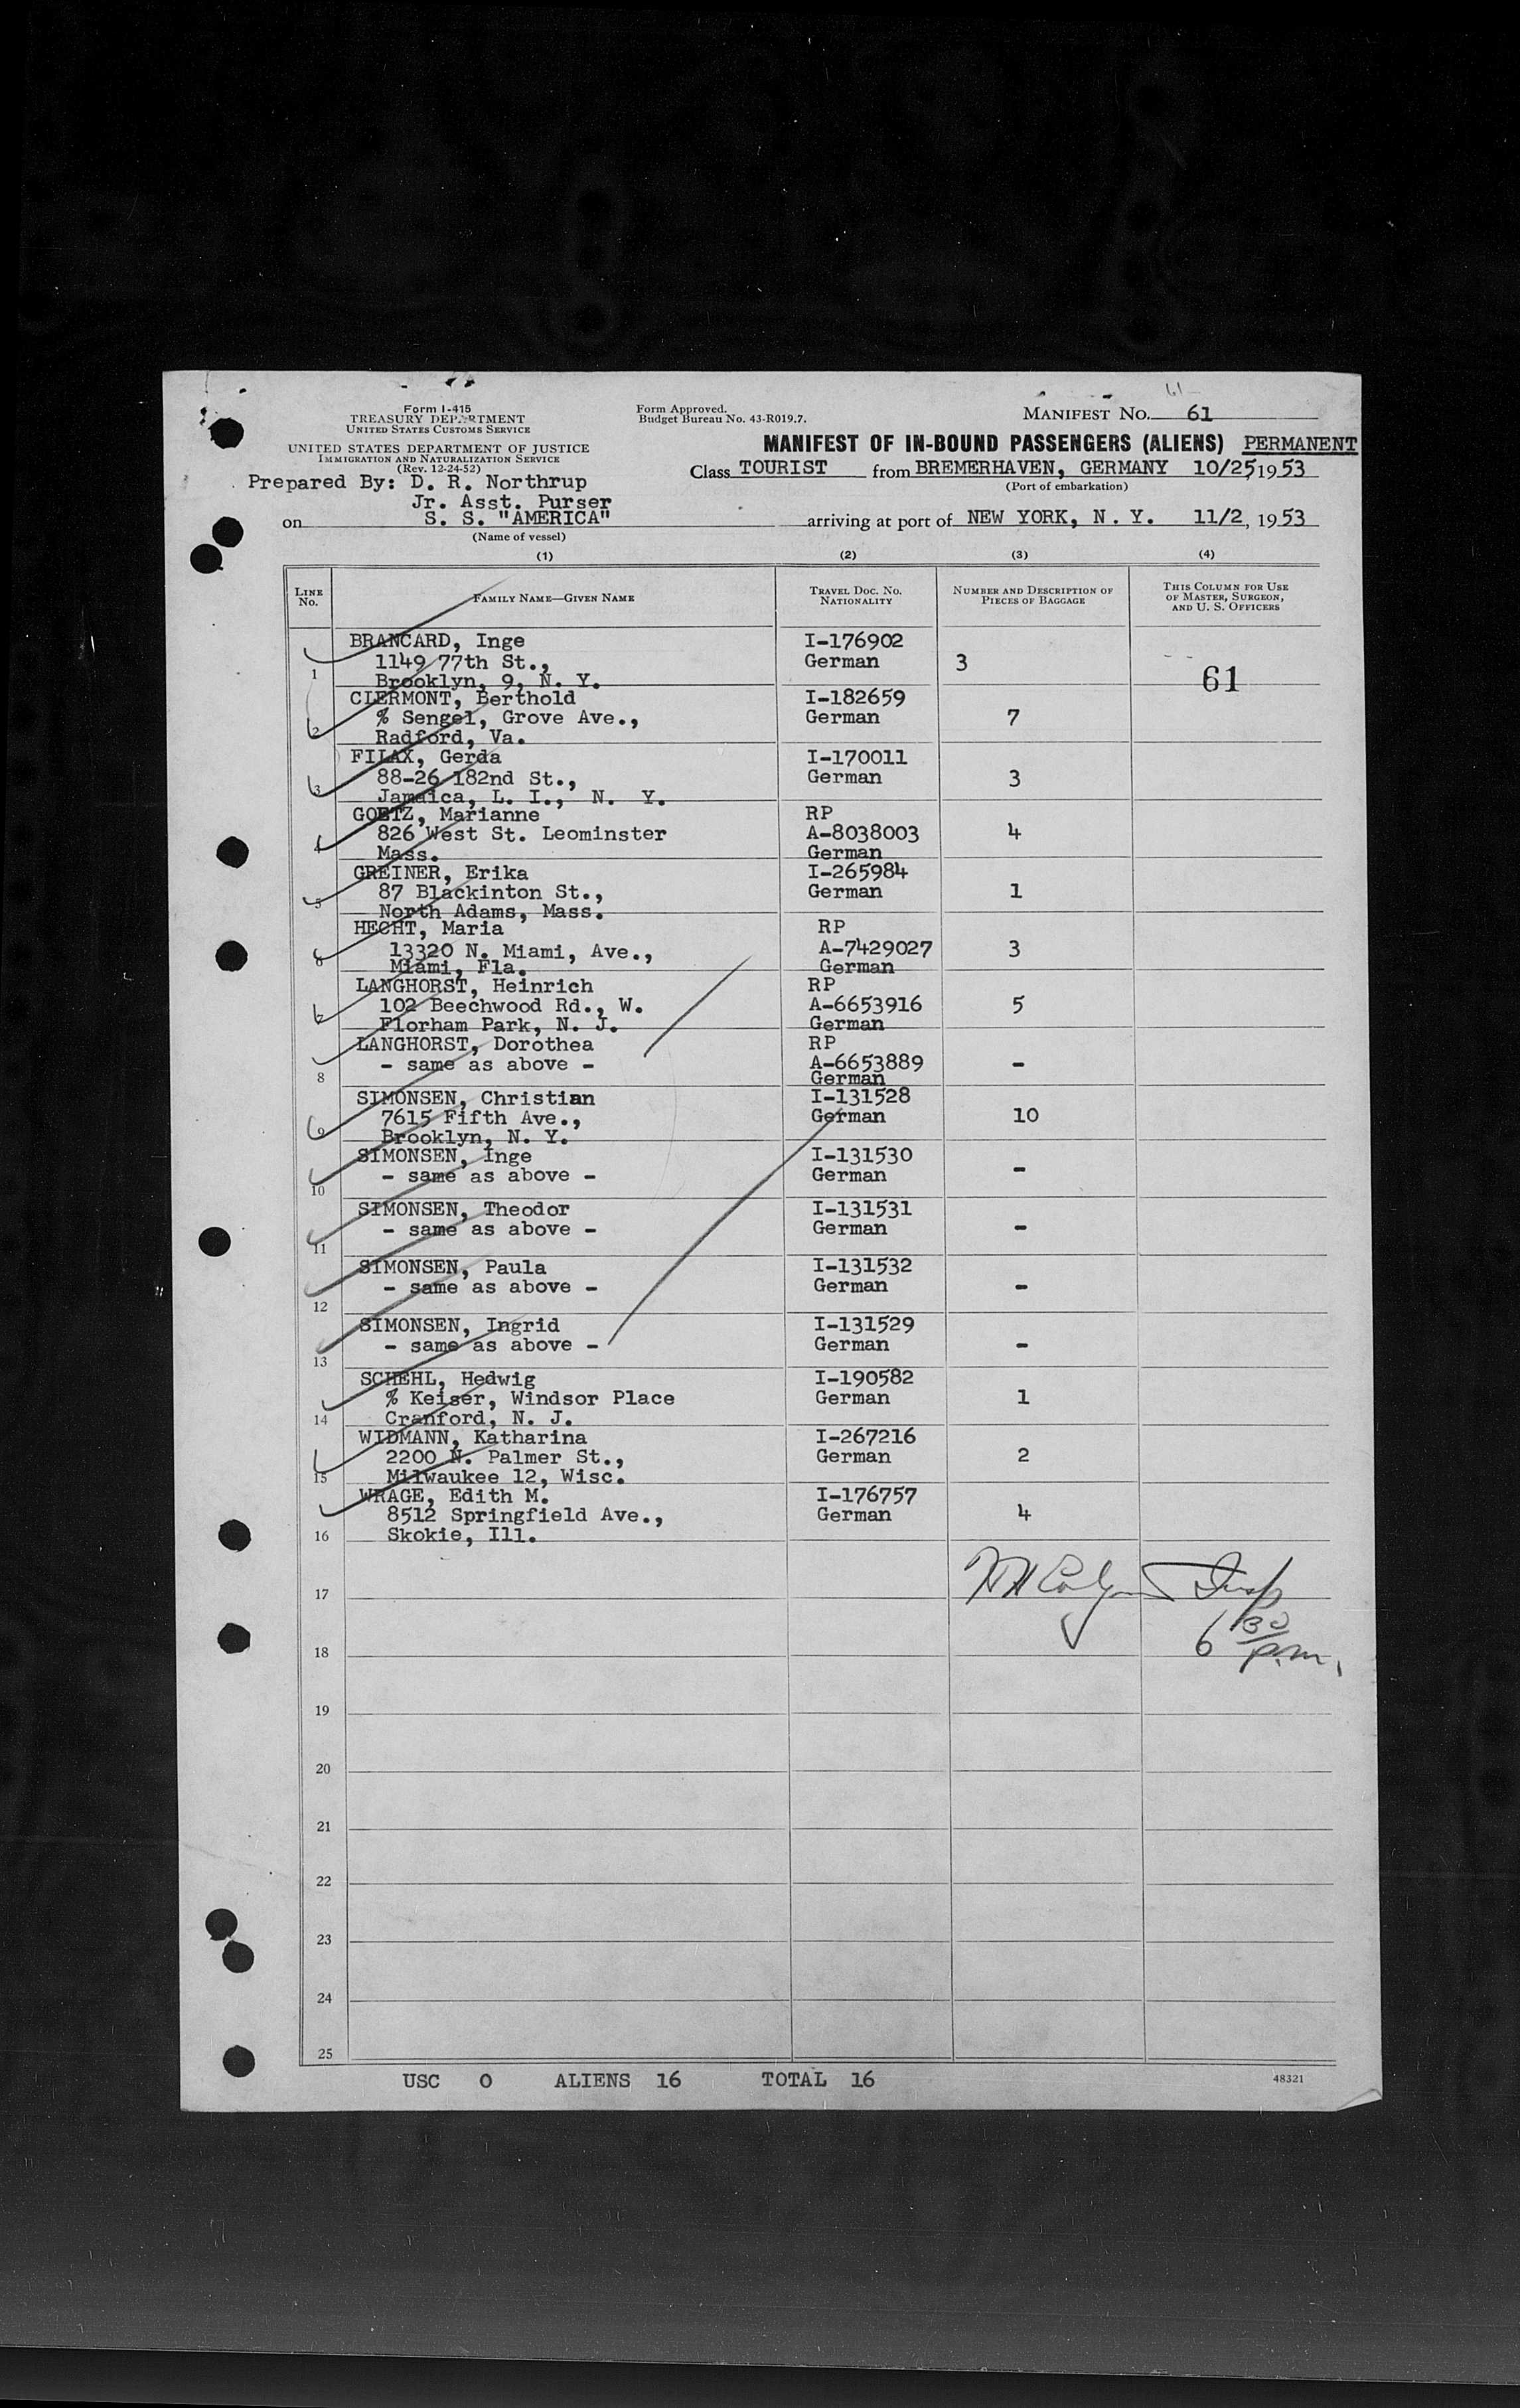 61
Form I-415
TREASURY DEPARTMENT
UNITED STATES CUSTOMS SERVICE
Form Approved.
Budget Bureau No. 43-R019.7.
MANIFEST NO. 61
UNITED STATES DEPARTMENT OF JUSTICE
IMMIGRATION AND NATURALIZATION SERVICE
(Rev. 12-24-52)
MANIFEST OF IN-BOUND PASSENGERS (ALIENS) PERMANENT
Prepared By: D. R. Northrup
Jr. Asst. Purser
Class TOURIST from BREMERHAVEN, GERMANY 10/25, 1953
(Port of embarkation)
on S. S. "AMERICA" arriving at port of NEW YORK, N. Y. 11/2, 1953
(Name of vessel)
(1) (2) (3) (4)
LINE NO. FAMILY NAME—GIVEN NAME TRAVEL DOC. NO. NATIONALITY NUMBER AND DESCRIPTION OF PIECES OF BAGGAGE THIS COLUMN FOR USE OF MASTER, SURGEON, AND U. S. OFFICERS
BRANCARD, Inge I-176902
1149 77th St., German 3
1 Brooklyn, 9, N. Y. 61
CLERMONT, Berthold I-182659
% Sengel, Grove Ave., German 7
2 Radford, Va.
FILAX, Gerda I-170011
88-26 182nd St., German 3
3 Jamaica, L. I., N. Y.
GOETZ, Marianne RP
826 West St. Leominster A-8038003 4
4 Mass. German
GREINER, Erika I-265984
87 Blackinton St., German 1
5 North Adams, Mass.
HECHT, Maria RP
13320 N. Miami, Ave., A-7429027 3
6 Miami, Fla. German
LANGHORST, Heinrich RP
102 Beechwood Rd., W. A-6653916 5
7 Florham Park, N. J. German
LANGHORST, Dorothea RP
- same as above - A-6653889 -
8 German
SIMONSEN, Christian I-131528
7615 Fifth Ave., German 10
9 Brooklyn, N. Y.
SIMONSEN, Inge I-131530
- same as above - German -
10
SIMONSEN, Theodor I-131531
- same as above - German -
11
SIMONSEN, Paula I-131532
- same as above - German -
12
SIMONSEN, Ingrid I-131529
- same as above - German -
13
SCHEHL, Hedwig I-190582
% Keiser, Windsor Place German 1
14 Cranford, N. J.
WIDMANN, Katharina I-267216
2200 N. Palmer St., German 2
15 Milwaukee 12, Wisc.
WRAGE, Edith M. I-176757
8512 Springfield Ave., German 4
16 Skokie, Ill.
17 Insp
18 6 30 p.m.
19
20
21
22
23
24
25
USC 0 ALIENS 16 TOTAL 16 48321